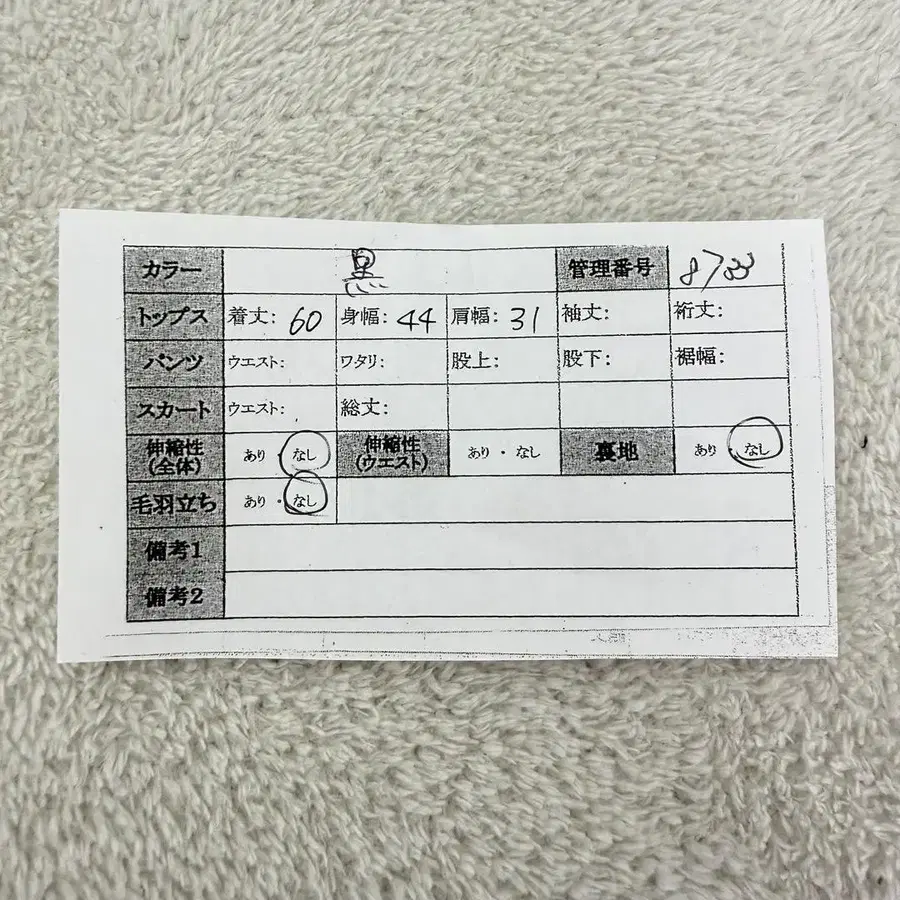 カラー 黒 管理番号 8733
トップス 着丈: 60 身幅: 44 肩幅: 31 袖丈: 裄丈:
パンツ ウエスト: ワタリ: 股上: 股下: 裾幅:
スカート ウエスト: 総丈:
伸縮性(全体) あり・なし 伸縮性(ウエスト) あり・なし 裏地 あり・なし
毛羽立ち あり・なし
備考1
備考2